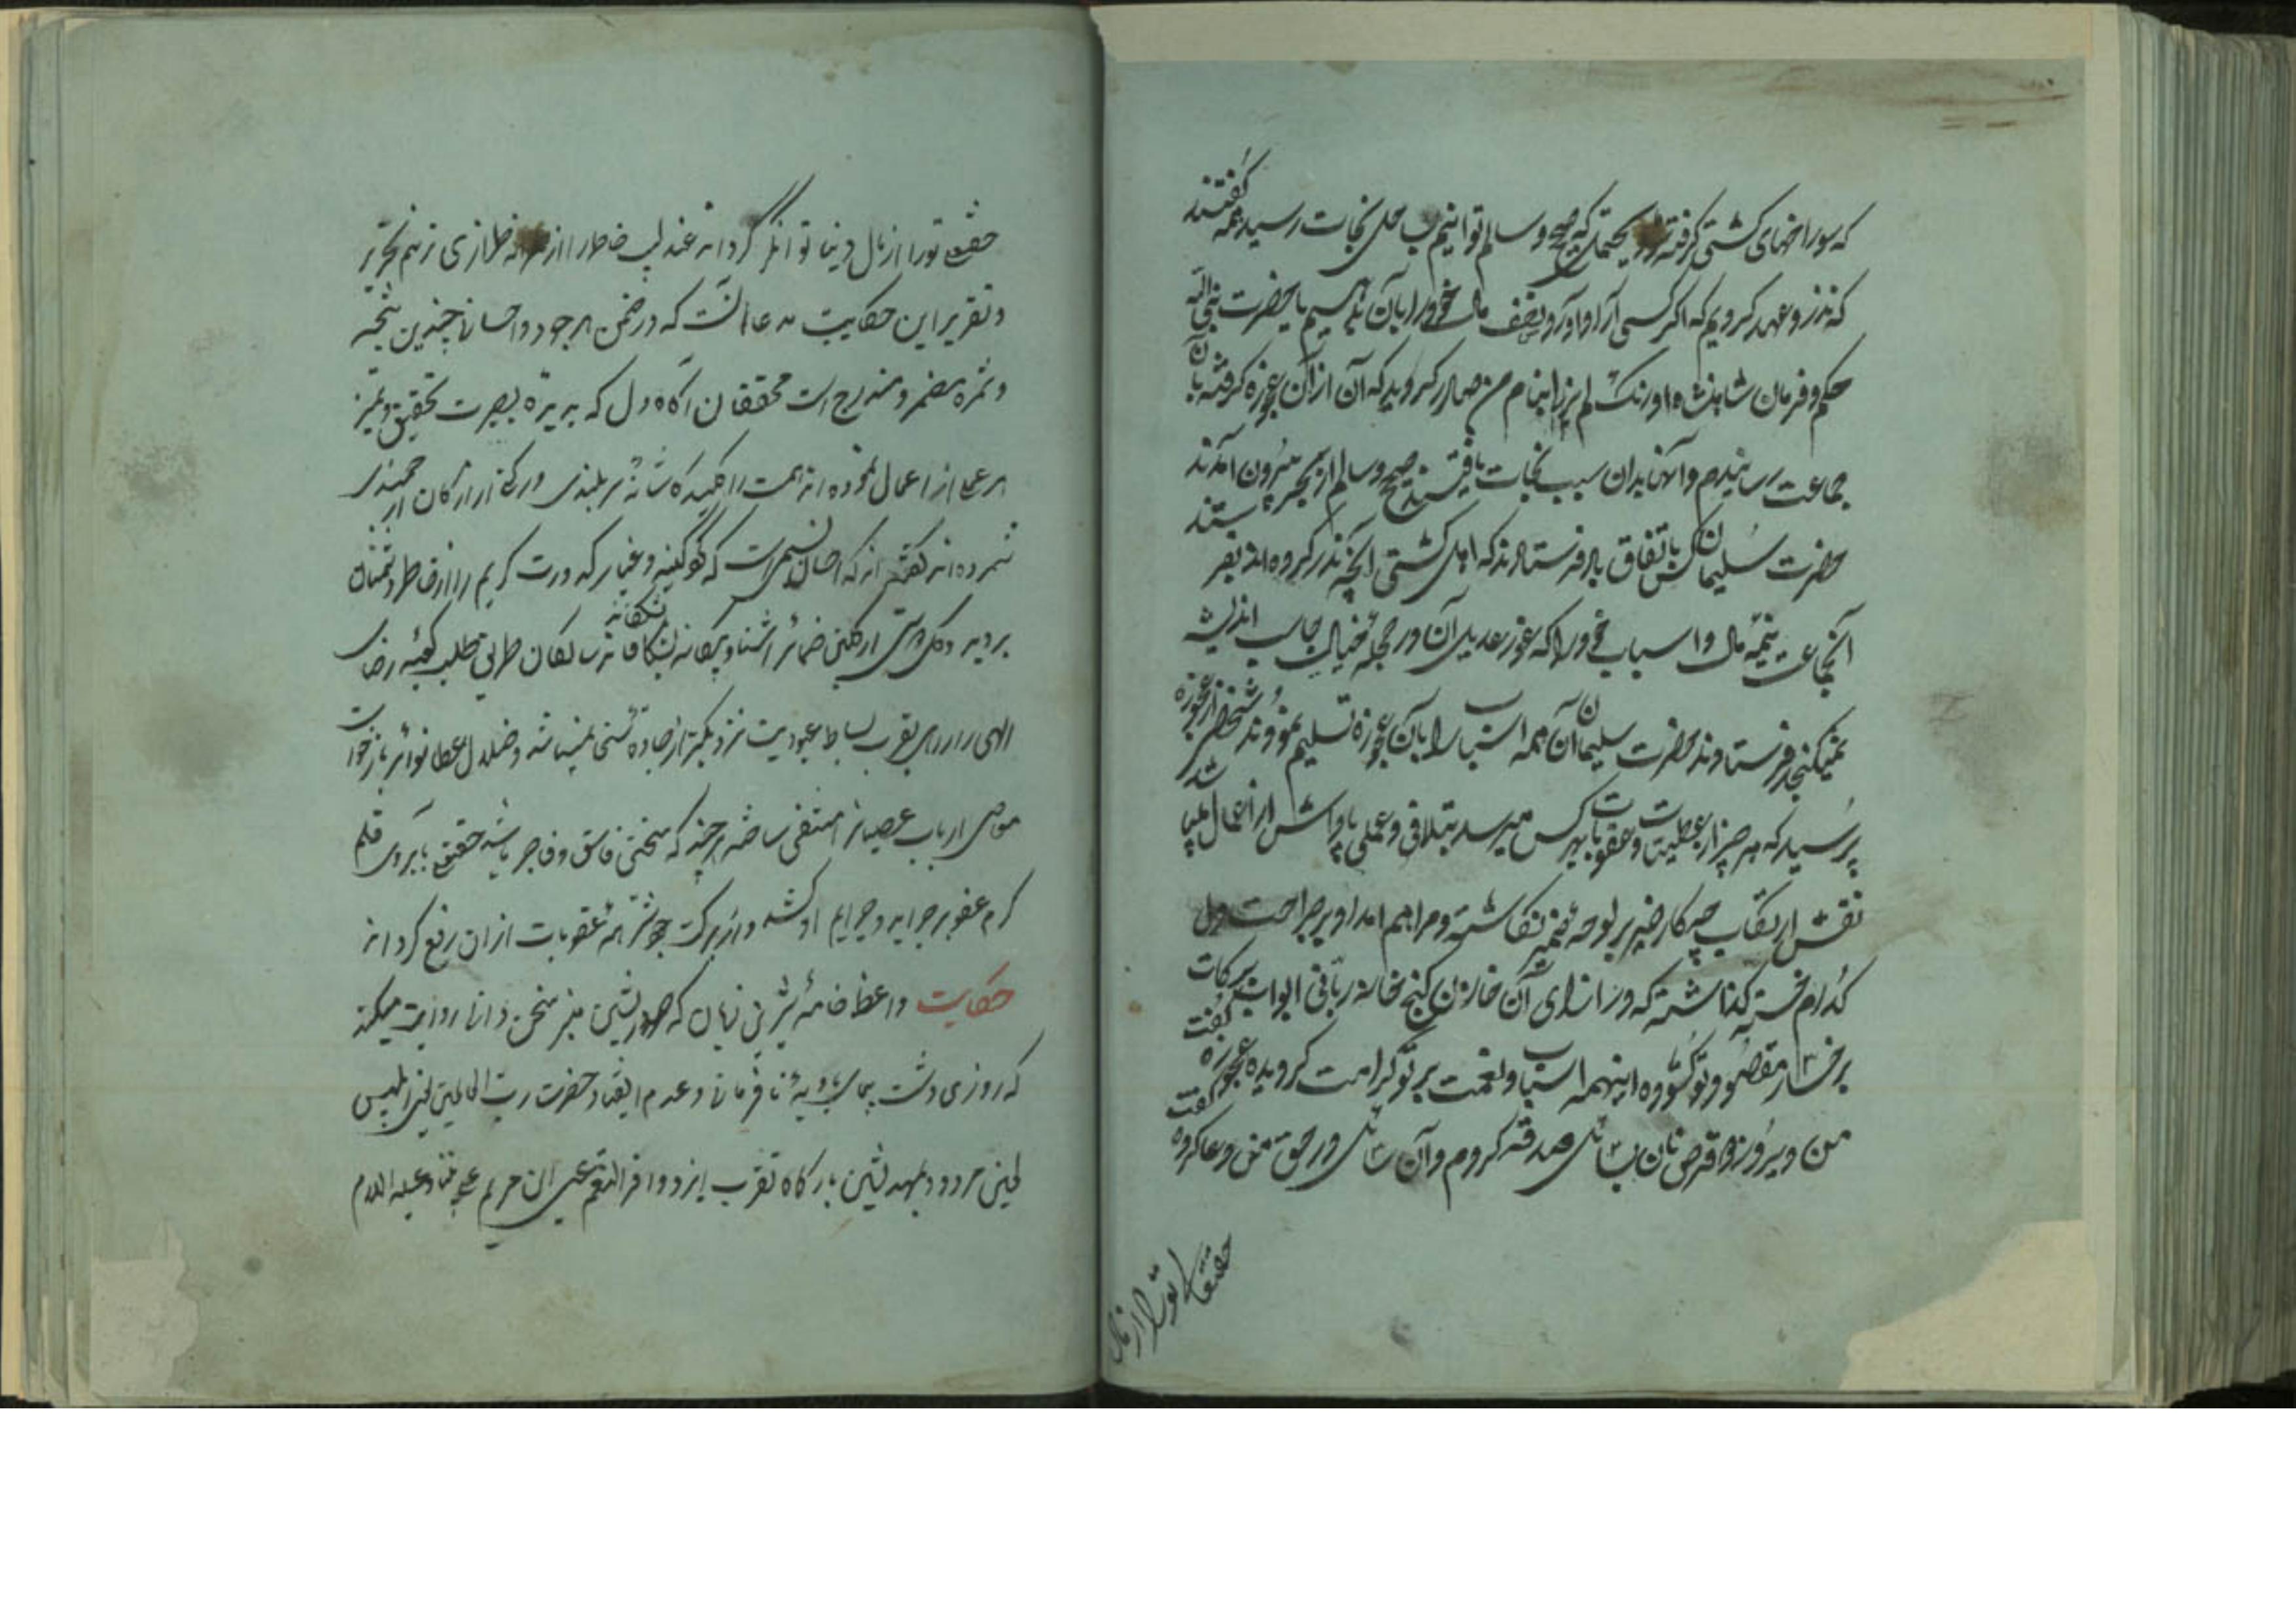 که سوراخهای کشتی گرفته شود یحتمل که صحیح و سالم توانیم بساحل نجات رسید همه گفتند
که نذر و عهد کردیم که اگر کسی آرد آورد نصف مال خود را بآن بدهیم یا حضرت نبی الله
حکم و فرمان شاهنشاه اورنگ لم یزل بنام من صادر گردید که آن ارد از آن عجوزه گرفته بآن
جماعت رسانیدم و آنها بدان سبب نجات یافتند صحیح و سالم از بحر بیرون آمدند
حضرت سلیمان کس باتفاق باد فرستادند که اهل کشتی آنچه نذر کرده اند بفرستند
آنجماعت نیمه مال و اسباب خود را که عدیل آن در حجله خیال محاسب اندیشه
نمیگنجد فرستادند حضرت سلیمان آن همه اسباب را بآن عجوزه تسلیم نمودند شخصی از عجوزه
پرسید که هر چیز از عطیت و عقوبت بهر کس میرسد بتلافی و عملی پاداش از اعمال میباشد
نقش ارتکاب چه کار خیر بر لوحه ضمیر نگاشته و مراهم امداد بر جراحت دل
کدام خسته گذاشته که در ازای آن خازن گنج خانه ربانی ابواب برکات
بر رخسار مقصود تو گشوده اینهمه اسباب و نعمت بر تو کرامت گردیده عجوزه گفت
من دیروز دو قرص نان بسائل صدقه کردم و آن سائل در حق من دعا کرده گفت
حقتعالی تو را از مال
حقتعالی تو را از مال دنیا توانگر گرداند عندلیب خاطر را از طرازی ترنم تحریر
و تقریر این حکایت مدعا آنست که در ضمن هر جود و احسان چندین نتیجه
و ثمره مضمر و مندرج است محققان آگاه دل که بدیده بصیرت تحقیق و تمیز
هر عملی از اعمال نموده اند همت را کلید کاشانه سربلندی و رکنی از ارکان ارجمندی
شمرده اند گفته اند که احسان نسیمی است که گرد کینه و غبار کدورت کریم را از خاطر دشمنان
ببرد و گل دوستی از گلبن ضمائر آشنا و بیگانه بشکفاند سالکان طریق طلب کعبه رضای
الهی را از راه بقرب بساط عبودیت نزدیکتر از جاده سخی نمیباشد و خلال عطا نوائر بازخواست
معاصی ارباب عصیان را منتفی ساخته هر چند که سخی فاسق و فاجر باشد حقتعالی بآبروی قلم
کرم عفو بر جراید و جرایم او کشد و از برکت جودش همه عقوبات از آن رفع گرداند
حکایت واعظ خامه شیرین زبان که صدرنشین منبر سخن دانی روایت میکند
که روزی دشت پیمای بادیه نافرمانی و عدم انقیاد حضرت رب العالمین یعنی ابلیس
لعین مردود بمهدنشین بارگاه تقرب ایزد وافر النعم عیسی ابن مریم علی نبینا و علیه السلام